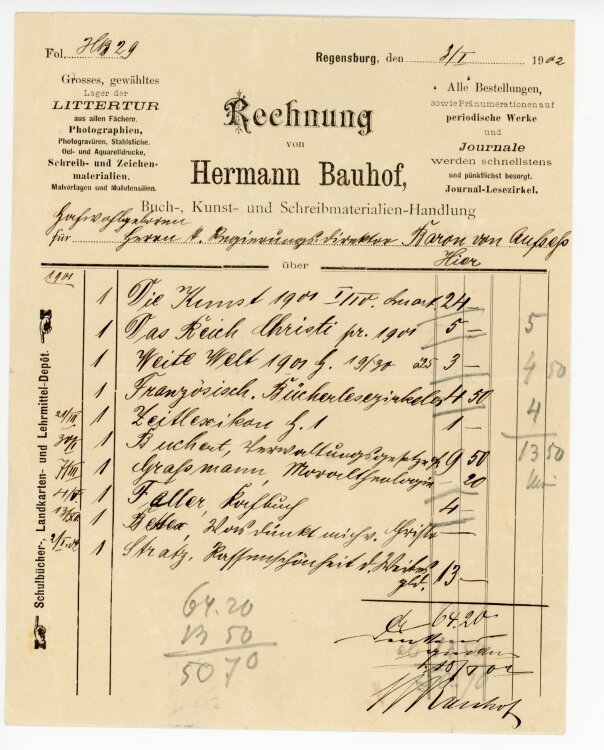 Fol. HB 29
Regensburg, den 3/I 1902
Grosses, gewähltes
Lager der
LITTERTUR
aus allen Fächern.
Photographien,
Photogravüren, Stahlstiche.
Oel- und Aquarelldrucke,
Schreib- und Zeichen-
materialien.
Malvorlagen und Malutensilien.
Rechnung
von
Hermann Bauhof,
Buch-, Kunst- und Schreibmaterialien-Handlung
Alle Bestellungen,
sowie Pränumerationen auf
periodische Werke
und
Journale
werden schnellstens
und pünktlichst besorgt.
Journal-Lesezirkel.
Hochwohlgeboren
für Herrn k. Regierungsdirektor Baron von Aufsess
Hier
über
Schulbücher-, Landkarten- und Lehrmittel-Depôt.
1901
1 Die Kunst 1901 I/IV. 24 —
1 Das Reich Christi pr. 1901 5 —
1 Weite Welt 1901 H. 19/30 25 3 —
1 Französisch. Bücherlesezirkel 4 50
1 Zeitlexikon H. 1 1 —
1 Verwaltungsgesetze 9 50
1 Grassmann, Moraltheologie — 20
1 Kochbuch 4 —
1 Was dünkt mich v. Christo —
1 Stratz, Rassenschönheit d. Weibes
gbd. 13 —
64.20
5
4 50
4
13 50
64.20
13 50
50 70
Bauhof